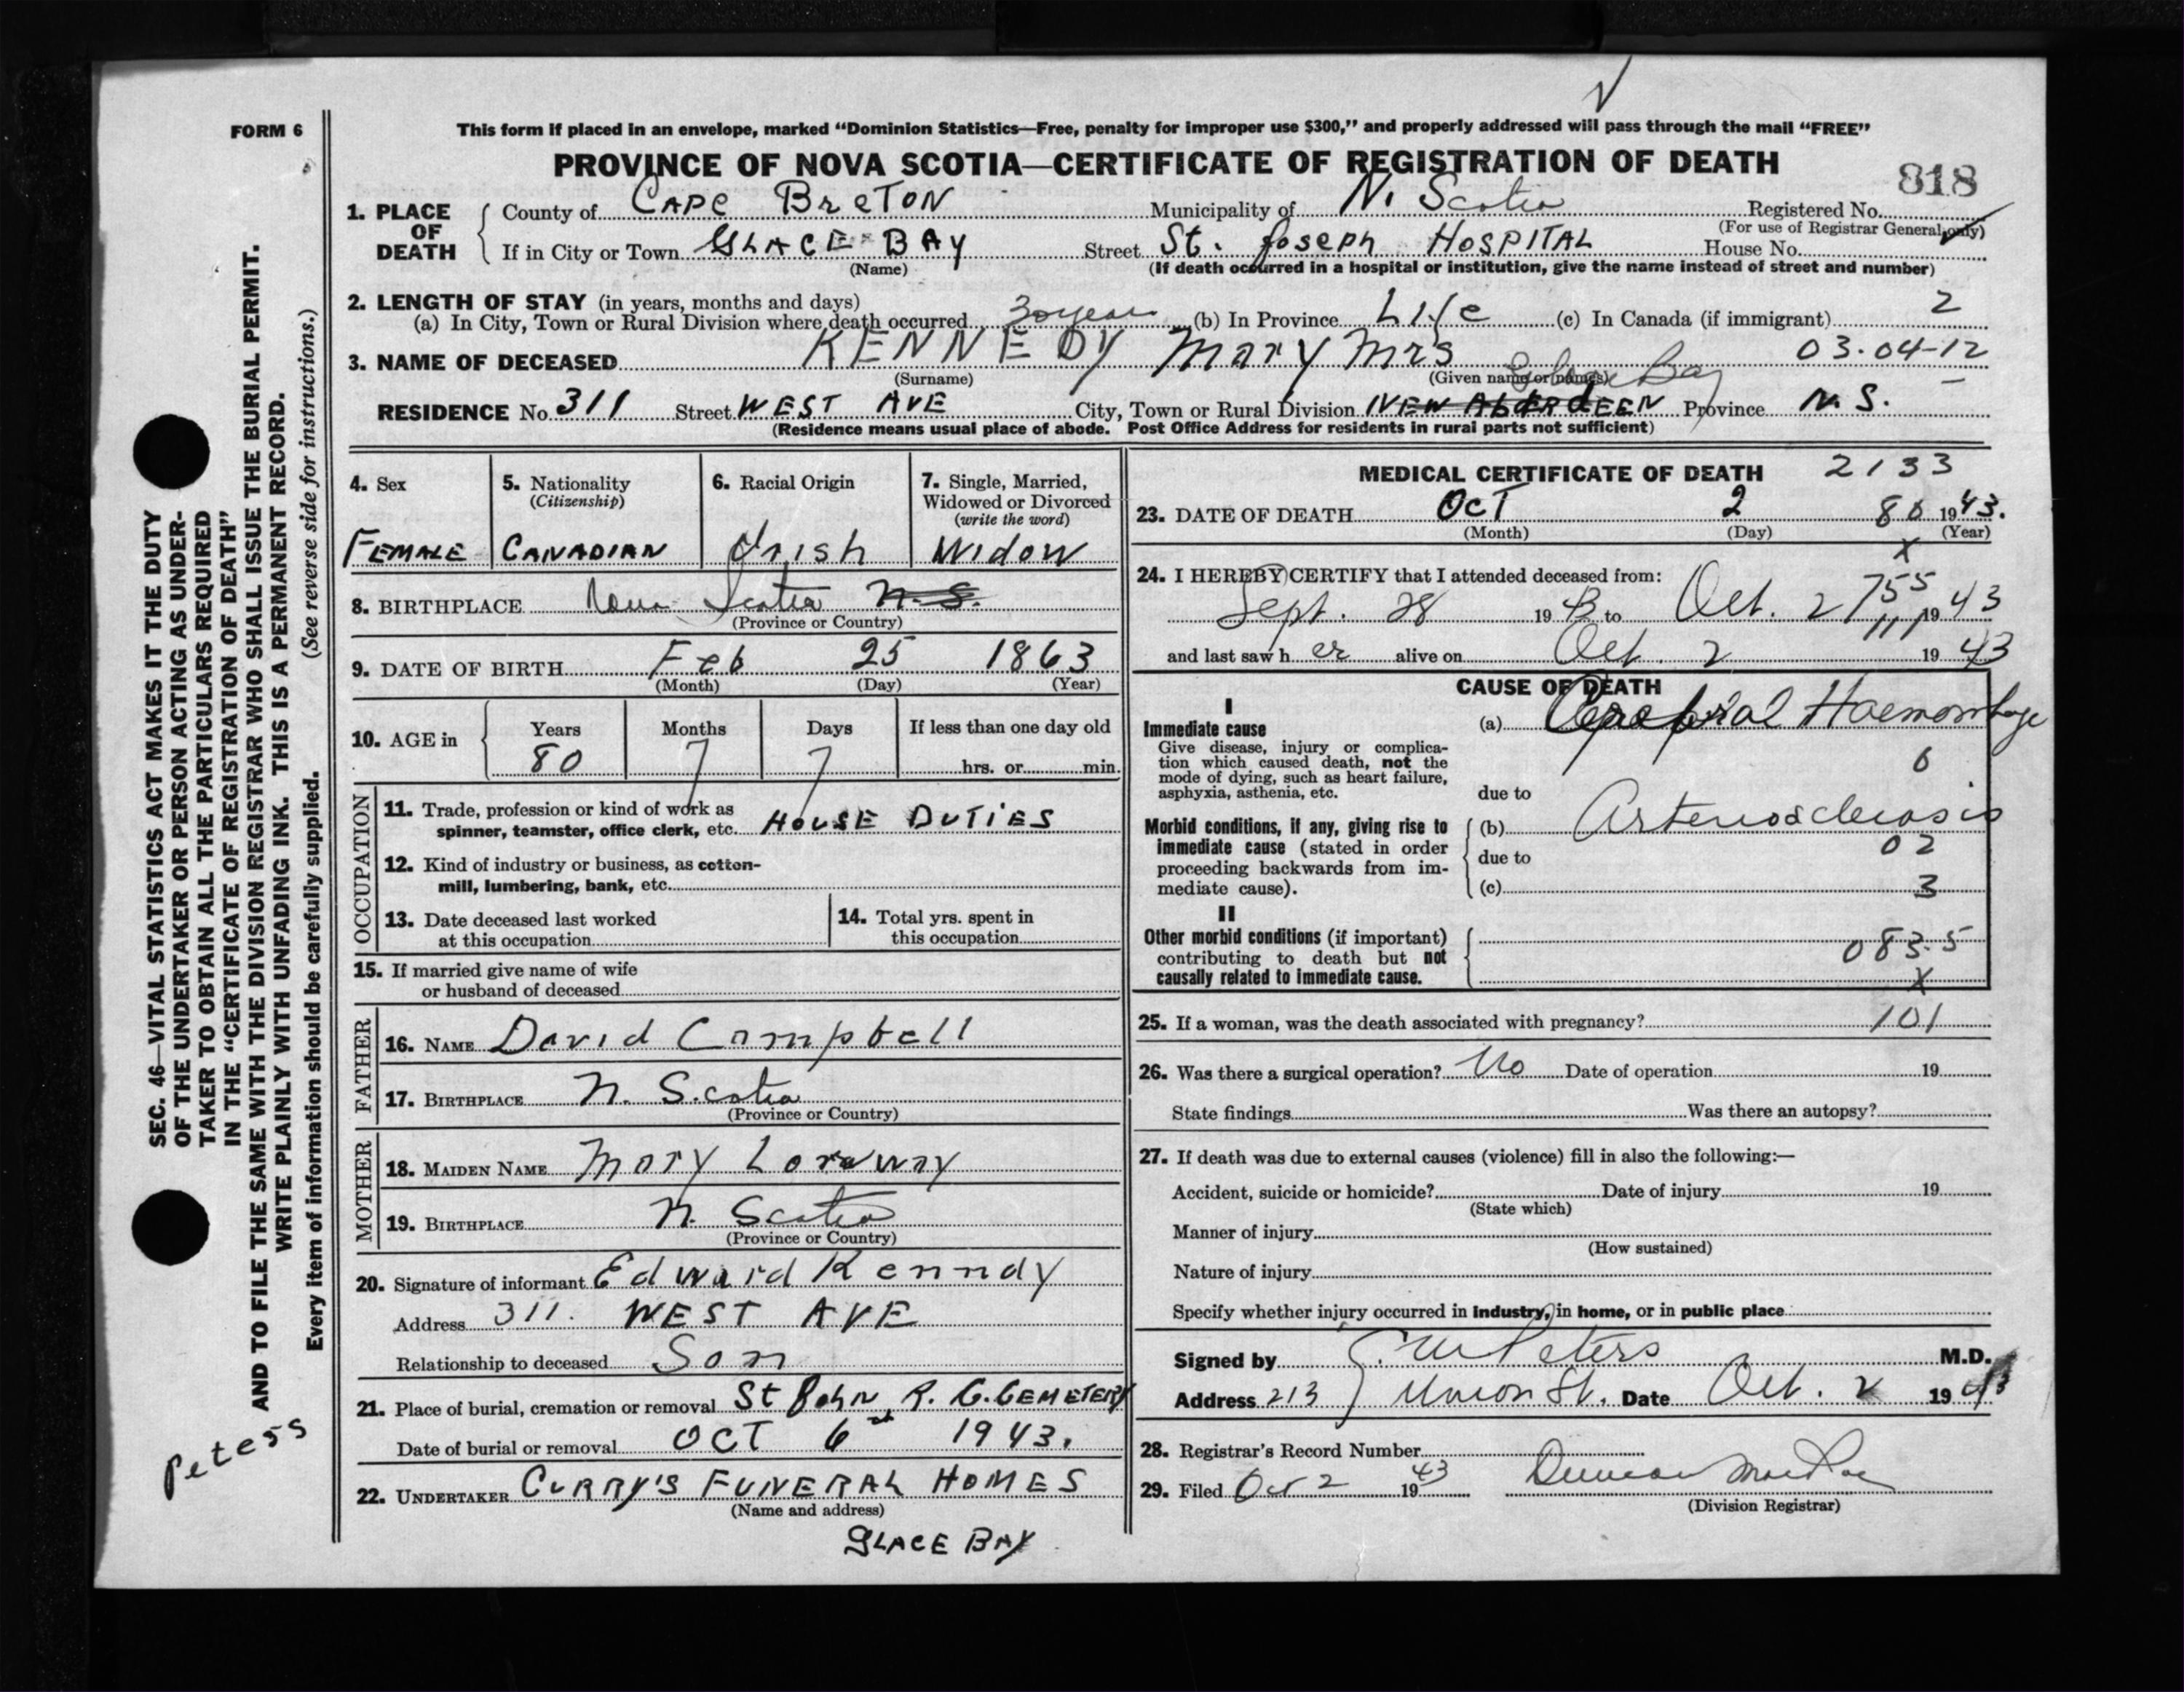 FORM 6
This form if placed in an envelope, marked “Dominion Statistics—Free, penalty for improper use $300,” and properly addressed will pass through the mail “FREE”
PROVINCE OF NOVA SCOTIA—CERTIFICATE OF REGISTRATION OF DEATH
818
1. PLACE OF DEATH
County of CAPE BreTON Municipality of N. Scotia Registered No.
(For use of Registrar General only)
If in City or Town GLACE BAY Street St. Joseph HOSPITAL House No.
(Name) (If death occurred in a hospital or institution, give the name instead of street and number)
2. LENGTH OF STAY (in years, months and days)
(a) In City, Town or Rural Division where death occurred 30 year (b) In Province Life (c) In Canada (if immigrant) 2
3. NAME OF DECEASED KENNEDY Mary Mrs 03-04-12
(Surname) (Given name or names)
Glace Bay
RESIDENCE No. 311 Street WEST AVE City, Town or Rural Division NEW AbERdEEN Province N. S.
(Residence means usual place of abode. Post Office Address for residents in rural parts not sufficient)
4. Sex
FEMALE
5. Nationality
(Citizenship)
CANADIAN
6. Racial Origin
Irish
7. Single, Married,
Widowed or Divorced
(write the word)
Widow
8. BIRTHPLACE Nova Scotia N.S.
(Province or Country)
9. DATE OF BIRTH Feb 25 1863
(Month) (Day) (Year)
10. AGE in
Years Months Days If less than one day old
80 7 7 hrs. or min.
OCCUPATION
11. Trade, profession or kind of work as
spinner, teamster, office clerk, etc. HOUSE DUTIES
12. Kind of industry or business, as cotton-
mill, lumbering, bank, etc.
13. Date deceased last worked
at this occupation
14. Total yrs. spent in
this occupation
15. If married give name of wife
or husband of deceased
FATHER
16. NAME David Campbell
17. BIRTHPLACE N. Scotia
(Province or Country)
MOTHER
18. MAIDEN NAME Mary Loraway
19. BIRTHPLACE N. Scotia
(Province or Country)
20. Signature of informant Edward Kenndy
Address 311. WEST AVE
Relationship to deceased Son
21. Place of burial, cremation or removal St John R. C. CEMETERY
Date of burial or removal OCT 6 1943.
22. UNDERTAKER CURRY'S FUNERAL HOMES
(Name and address)
GLACE BAY
MEDICAL CERTIFICATE OF DEATH 2133
23. DATE OF DEATH OcT 2 80 1943.
(Month) (Day) (Year)
X
24. I HEREBY CERTIFY that I attended deceased from:
755
Sept. 28 1943 to Oct. 2 1943
111
and last saw her alive on Oct. 2 1943
CAUSE OF DEATH
I
Immediate cause
Give disease, injury or complica-
tion which caused death, not the
mode of dying, such as heart failure,
asphyxia, asthenia, etc.
(a) Cerebral Haemorrhage
6
due to
Morbid conditions, if any, giving rise to
immediate cause (stated in order
proceeding backwards from im-
mediate cause).
(b) Arteriosclerosis
02
due to
(c) 3
II
Other morbid conditions (if important)
contributing to death but not
causally related to immediate cause.
083.5
X
25. If a woman, was the death associated with pregnancy? 101
26. Was there a surgical operation? No Date of operation 19
State findings Was there an autopsy?
27. If death was due to external causes (violence) fill in also the following:—
Accident, suicide or homicide? Date of injury 19
(State which)
Manner of injury
(How sustained)
Nature of injury
Specify whether injury occurred in industry, in home, or in public place
Signed by Peters M.D.
Address 213 Union St. Date Oct. 2 1943
28. Registrar's Record Number
29. Filed Oct 2 1943 Duncan MacRae
(Division Registrar)
SEC. 46—VITAL STATISTICS ACT MAKES IT THE DUTY
OF THE UNDERTAKER OR PERSON ACTING AS UNDER-
TAKER TO OBTAIN ALL THE PARTICULARS REQUIRED
IN THE “CERTIFICATE OF REGISTRATION OF DEATH”
AND TO FILE THE SAME WITH THE DIVISION REGISTRAR WHO SHALL ISSUE THE BURIAL PERMIT.
WRITE PLAINLY WITH UNFADING INK. THIS IS A PERMANENT RECORD.
Every item of information should be carefully supplied. (See reverse side for instructions.)
Peters